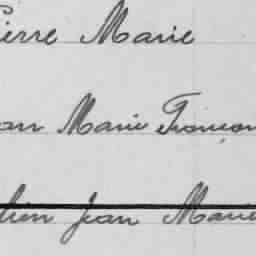 Pierre Marie
an Marie François
lien Jean Marie